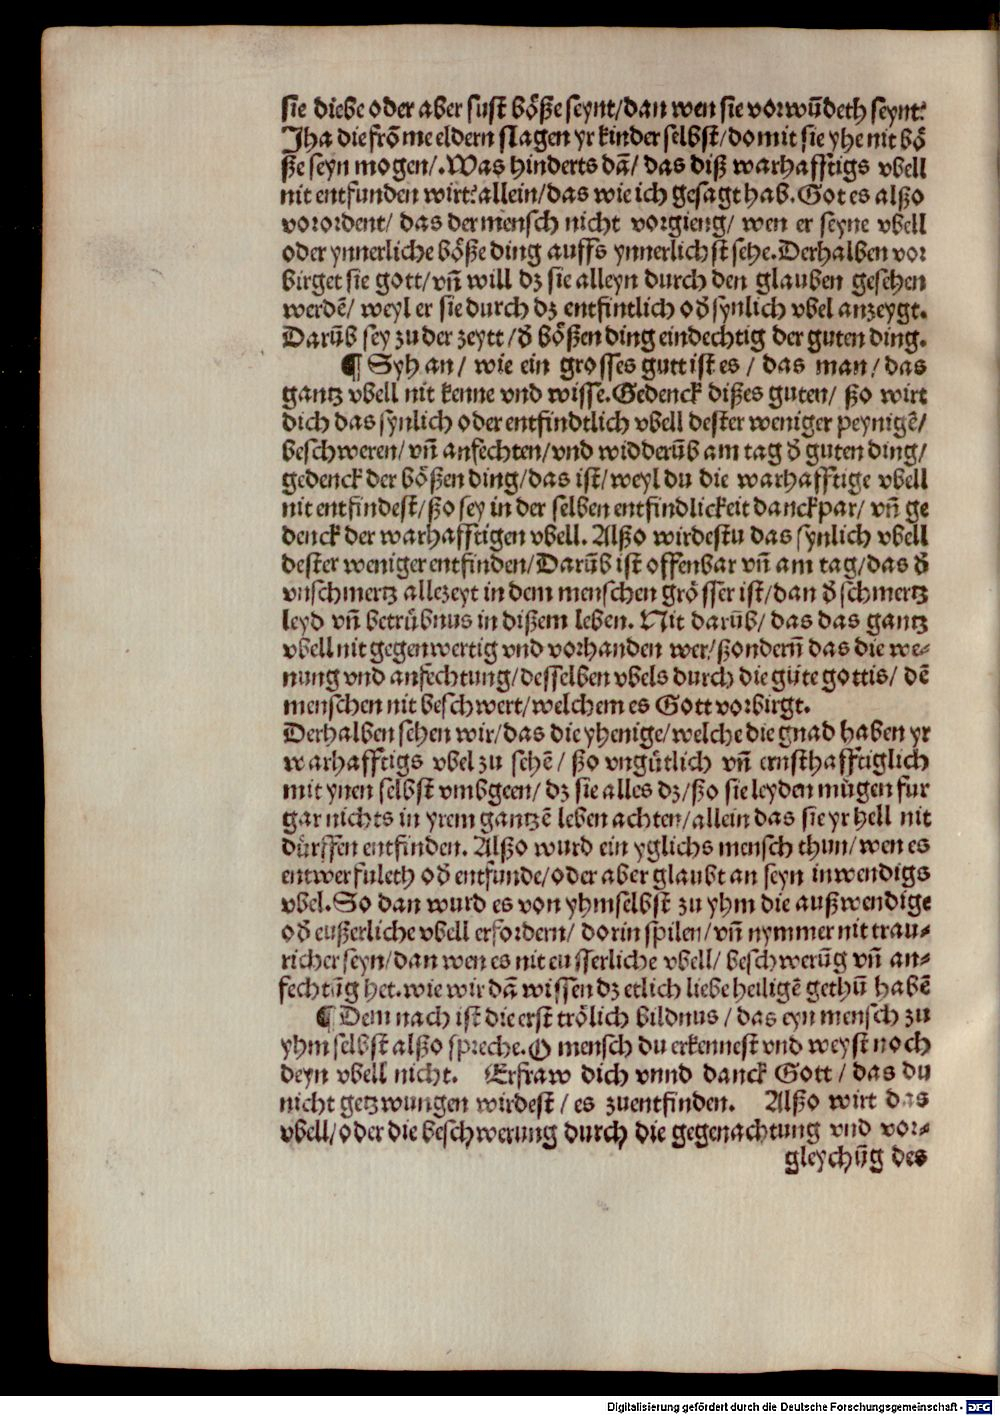 sie diebe oder aber sust böße seynt/dan wen sie vorwūdeth seynt:
Jha die frō me eldern slagen yr kinder selbst/domit sie yhe nit bö
ße seyn mogen/. Was hinderts dā/ das diß warhafftigs vbell
nit entfunden wirt: allein/das wie ich gesagt hab. Got es alßo
vorordent/ das der mensch nicht vorgieng/ wen er seyne vbell
oder ynnerliche böße ding auffs ynnerlichst sehe. Derhalben vor
birget sie gott/vn̄ will dz sie alleyn durch den glauben gesehen
werdē/ weyl er sie durch dz entfintlich oď synlich vbel anzeygt.
Darūb sey zu der zeytt/ď bößen ding eindechtig der guten ding.
¶ Syh an/ wie ein grosses gutt ist es/ das man/ das
gantz vbell nit kenne vnd wisse. Gedenck dißes guten/ ßo wirt
dich das synlich oder entfindtlich vbell dester weniger peynigē/
beschweren/vn̄ anfechten/vnd widderūb am tag ď guten ding/
gedenck der bößen ding/das ist/weyl du die warhafftige vbell
nit entfindest/ßo sey in der selben entfindlickeit danckpar/ vn̄ ge
denck der warhafftigen vbell. Alßo wirdestu das synlich vbell
dester weniger entfinden/Darūb ist offenbar vn̄ am tag/das ď
vnschmertz allezeyt in dem menschen grösser ist/dan ď schmertz
leyd vn̄ betrübnus in dißem leben. Nit darūb/ das das gantz
vbell nit gegenwertig vnd vorhanden wer/ßondern̄ das die we⸗
nung vnd anfechtung/desselben vbels durch die güte gottis/ dē
menschen nit beschwert/welchem es Gott vorbirgt.
Derhalben sehen wir/das die yhenige/welche die gnad haben yr
warhafftigs vbel zu sehē/ ßo vngütlich vn̄ ernsthafftiglich
mit ynen selbst vmbgeen/ dz sie alles dz/ßo sie leyden mügen fur
gar nichts in yrem gantzē leben achten/allein das sie yr hell nit
dürffen entfinden. Alßo wurd ein yglichs mensch thun/wen es
entwer fuleth oď entfunde/oder aber glaubt an seyn inwendigs
vbel. So dan wurd es von yhmselbst zu yhm die außwendige
oď eußerliche vbell erfordern/ dorin spilen/vn̄ nymmer nit trau⸗
richer seyn/dan wen es nit eusserliche vbell/ beschwerūg vn̄ an⸗
fechtūg het. wie wir dā wissen dz etlich liebe heiligē gethū habē
¶ Dem nach ist die erst trölich bildnus/das eyn mensch zu
yhm selbst alßo spreche. O mensch du erkennest vnd weyst noch
deyn vbell nicht. Erfraw dich vnnd danck Gott/ das du
nicht getzwungen wirdest/ es zuentfinden. Alßo wirt das
vbell/oder die beschwerung durch die gegenachtung vnd vor⸗
gleychūg des
Digitalisierung gefördert durch die Deutsche Forschungsgemeinschaft - DFG